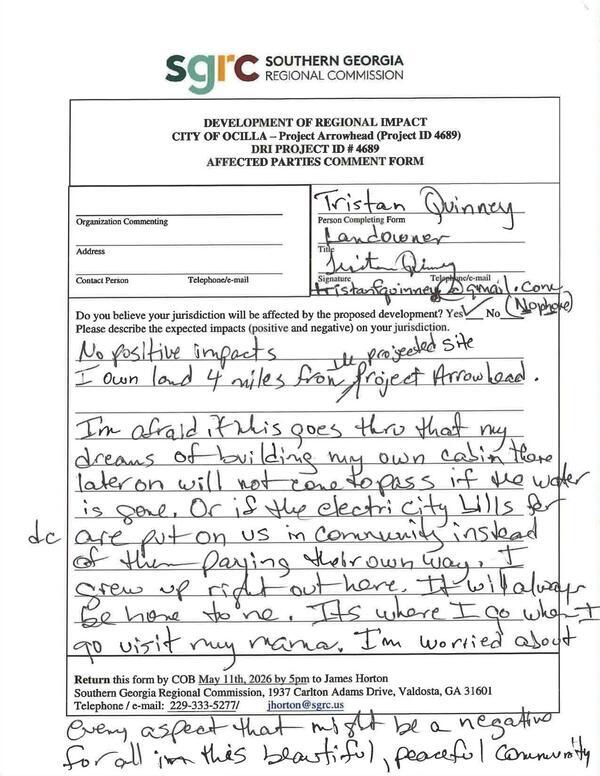 sgrc SOUTHERN GEORGIA
REGIONAL COMMISSION
DEVELOPMENT OF REGIONAL IMPACT
CITY OF OCILLA – Project Arrowhead (Project ID 4689)
DRI PROJECT ID # 4689
AFFECTED PARTIES COMMENT FORM
Organization Commenting
Address
Contact Person Telephone/e-mail
Tristan Quinney
Person Completing Form
Landowner
Title
Tristan Quinney
Signature Telephone/e-mail
tristanfquinney@gmail.com
(No phone)
Do you believe your jurisdiction will be affected by the proposed development? Yes ✓ No
Please describe the expected impacts (positive and negative) on your jurisdiction.
No positive impacts
I own land 4 miles from the projected site Project Arrowhead.
I'm afraid if this goes thru that my
dreams of building my own cabin there
later on will not come to pass if the water
is gone. Or if the electricity bills for
dc are put on us in community instead
of them paying their own way. I
grew up right out here. It will always
be home to me. Its where I go when I
go visit my mama. I'm worried about
Return this form by COB May 11th, 2026 by 5pm to James Horton
Southern Georgia Regional Commission, 1937 Carlton Adams Drive, Valdosta, GA 31601
Telephone / e-mail: 229-333-5277/ jhorton@sgrc.us
every aspect that might be a negative
for all in this beautiful, peaceful community